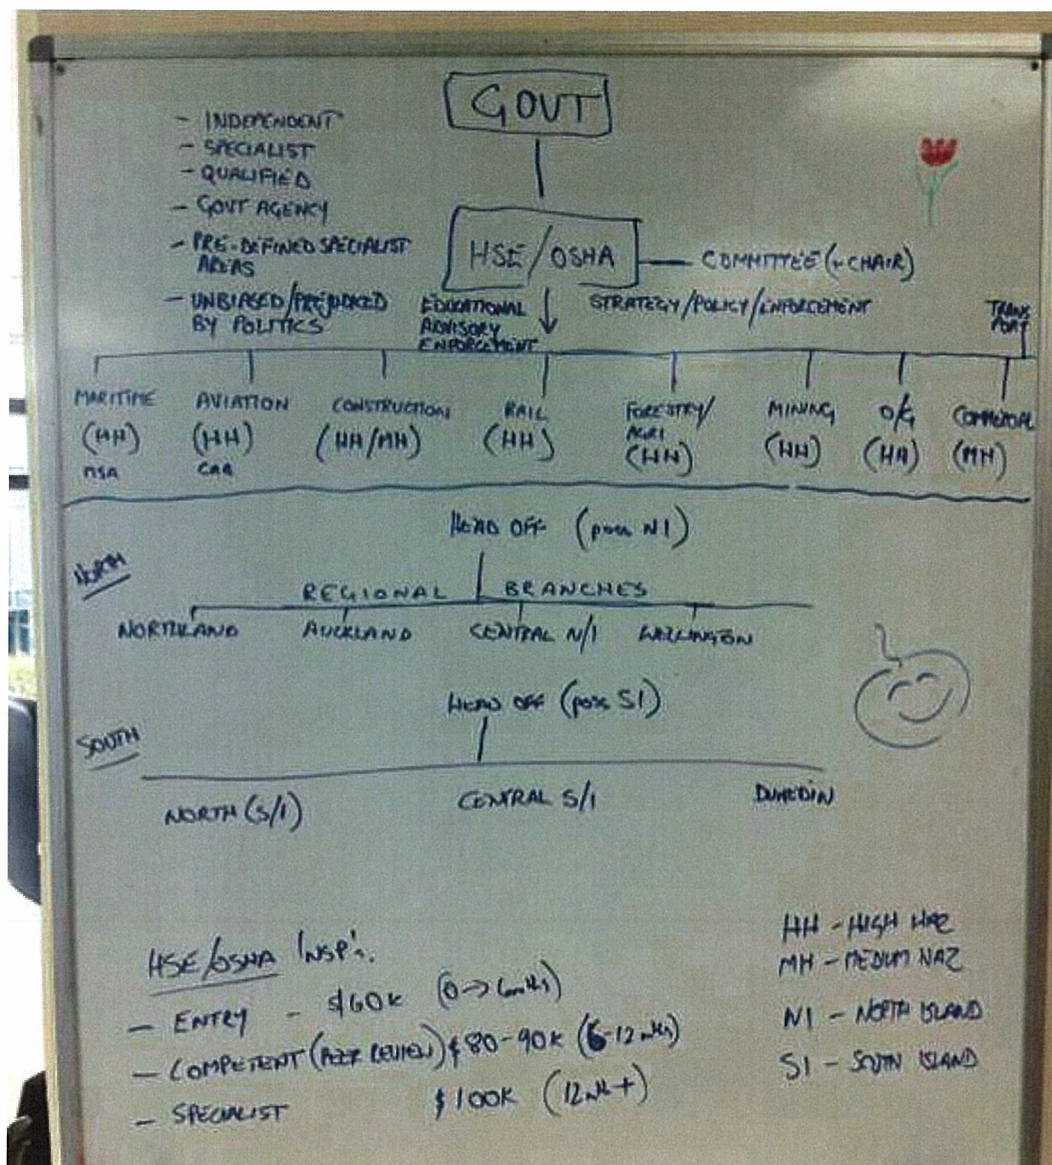 GOVT
- INDEPENDENT
- SPECIALIST
- QUALIFIED
- GOVT AGENCY
- PRE-DEFINED SPECIALIST
AREAS
- UNBIASED/PREJUDICED
BY POLITICS
HSE/OSHA
COMMITTEE (+ CHAIR)
STRATEGY/POLICY/ENFORCEMENT
EDUCATIONAL
ADVISORY
ENFORCEMENT
TRANS
PORT
MARITIME
(HH)
MSA
AVIATION
(HH)
CAA
CONSTRUCTION
(HH/MH)
RAIL
(HH)
FORESTRY/
AGRI
(HH)
MINING
(HH)
O/G
(HH)
COMMERCIAL
(MH)
NORTH
HEAD OFF (poss NI)
REGIONAL BRANCHES
NORTHLAND AUCKLAND CENTRAL N/I WELLINGTON
SOUTH
HEAD OFF (poss SI)
NORTH (S/I) CENTRAL S/I DUNEDIN
HSE/OSHA INSP's.
- ENTRY - $60K (0->6mths)
- COMPETENT (PEER REVIEW) $80-90K (6-12 mths)
- SPECIALIST $100K (12mth+)
HH - HIGH HAZ
MH - MEDIUM HAZ
NI - NORTH ISLAND
SI - SOUTH ISLAND